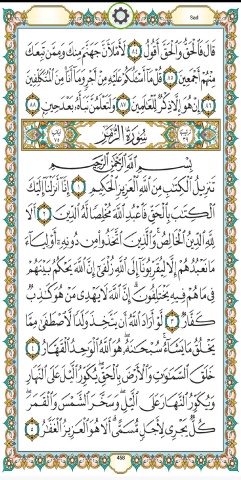 Sad
قَالَ فَٱلْحَقُّ وَٱلْحَقَّ أَقُولُ ٨٤ لَأَمْلَأَنَّ جَهَنَّمَ مِنكَ وَمِمَّن تَبِعَكَ
مِنْهُمْ أَجْمَعِينَ ٨٥ قُلْ مَآ أَسْـَٔلُكُمْ عَلَيْهِ مِنْ أَجْرٍ وَمَآ أَنَا۠ مِنَ ٱلْمُتَكَلِّفِينَ
٨٦ إِنْ هُوَ إِلَّا ذِكْرٌ لِّلْعَـٰلَمِينَ ٨٧ وَلَتَعْلَمُنَّ نَبَأَهُۥ بَعْدَ حِينٍۭ ٨٨
سُورَةُ الزُّمَرِ
بِسْمِ ٱللَّهِ ٱلرَّحْمَـٰنِ ٱلرَّحِيمِ
تَنزِيلُ ٱلْكِتَـٰبِ مِنَ ٱللَّهِ ٱلْعَزِيزِ ٱلْحَكِيمِ ١ إِنَّآ أَنزَلْنَآ إِلَيْكَ
ٱلْكِتَـٰبَ بِٱلْحَقِّ فَٱعْبُدِ ٱللَّهَ مُخْلِصًا لَّهُ ٱلدِّينَ ٢ أَلَا
لِلَّهِ ٱلدِّينُ ٱلْخَالِصُ وَٱلَّذِينَ ٱتَّخَذُوا۟ مِن دُونِهِۦٓ أَوْلِيَآءَ
مَا نَعْبُدُهُمْ إِلَّا لِيُقَرِّبُونَآ إِلَى ٱللَّهِ زُلْفَىٰٓ إِنَّ ٱللَّهَ يَحْكُمُ بَيْنَهُمْ
فِى مَا هُمْ فِيهِ يَخْتَلِفُونَ إِنَّ ٱللَّهَ لَا يَهْدِى مَنْ هُوَ كَـٰذِبٌ
كَفَّارٌ ٣ لَّوْ أَرَادَ ٱللَّهُ أَن يَتَّخِذَ وَلَدًا لَّٱصْطَفَىٰ مِمَّا
يَخْلُقُ مَا يَشَآءُ سُبْحَـٰنَهُۥ هُوَ ٱللَّهُ ٱلْوَٰحِدُ ٱلْقَهَّارُ ٤
خَلَقَ ٱلسَّمَـٰوَٰتِ وَٱلْأَرْضَ بِٱلْحَقِّ يُكَوِّرُ ٱلَّيْلَ عَلَى ٱلنَّهَارِ
وَيُكَوِّرُ ٱلنَّهَارَ عَلَى ٱلَّيْلِ وَسَخَّرَ ٱلشَّمْسَ وَٱلْقَمَرَ
كُلٌّ يَجْرِى لِأَجَلٍ مُّسَمًّى أَلَا هُوَ ٱلْعَزِيزُ ٱلْغَفَّـٰرُ ٥
458